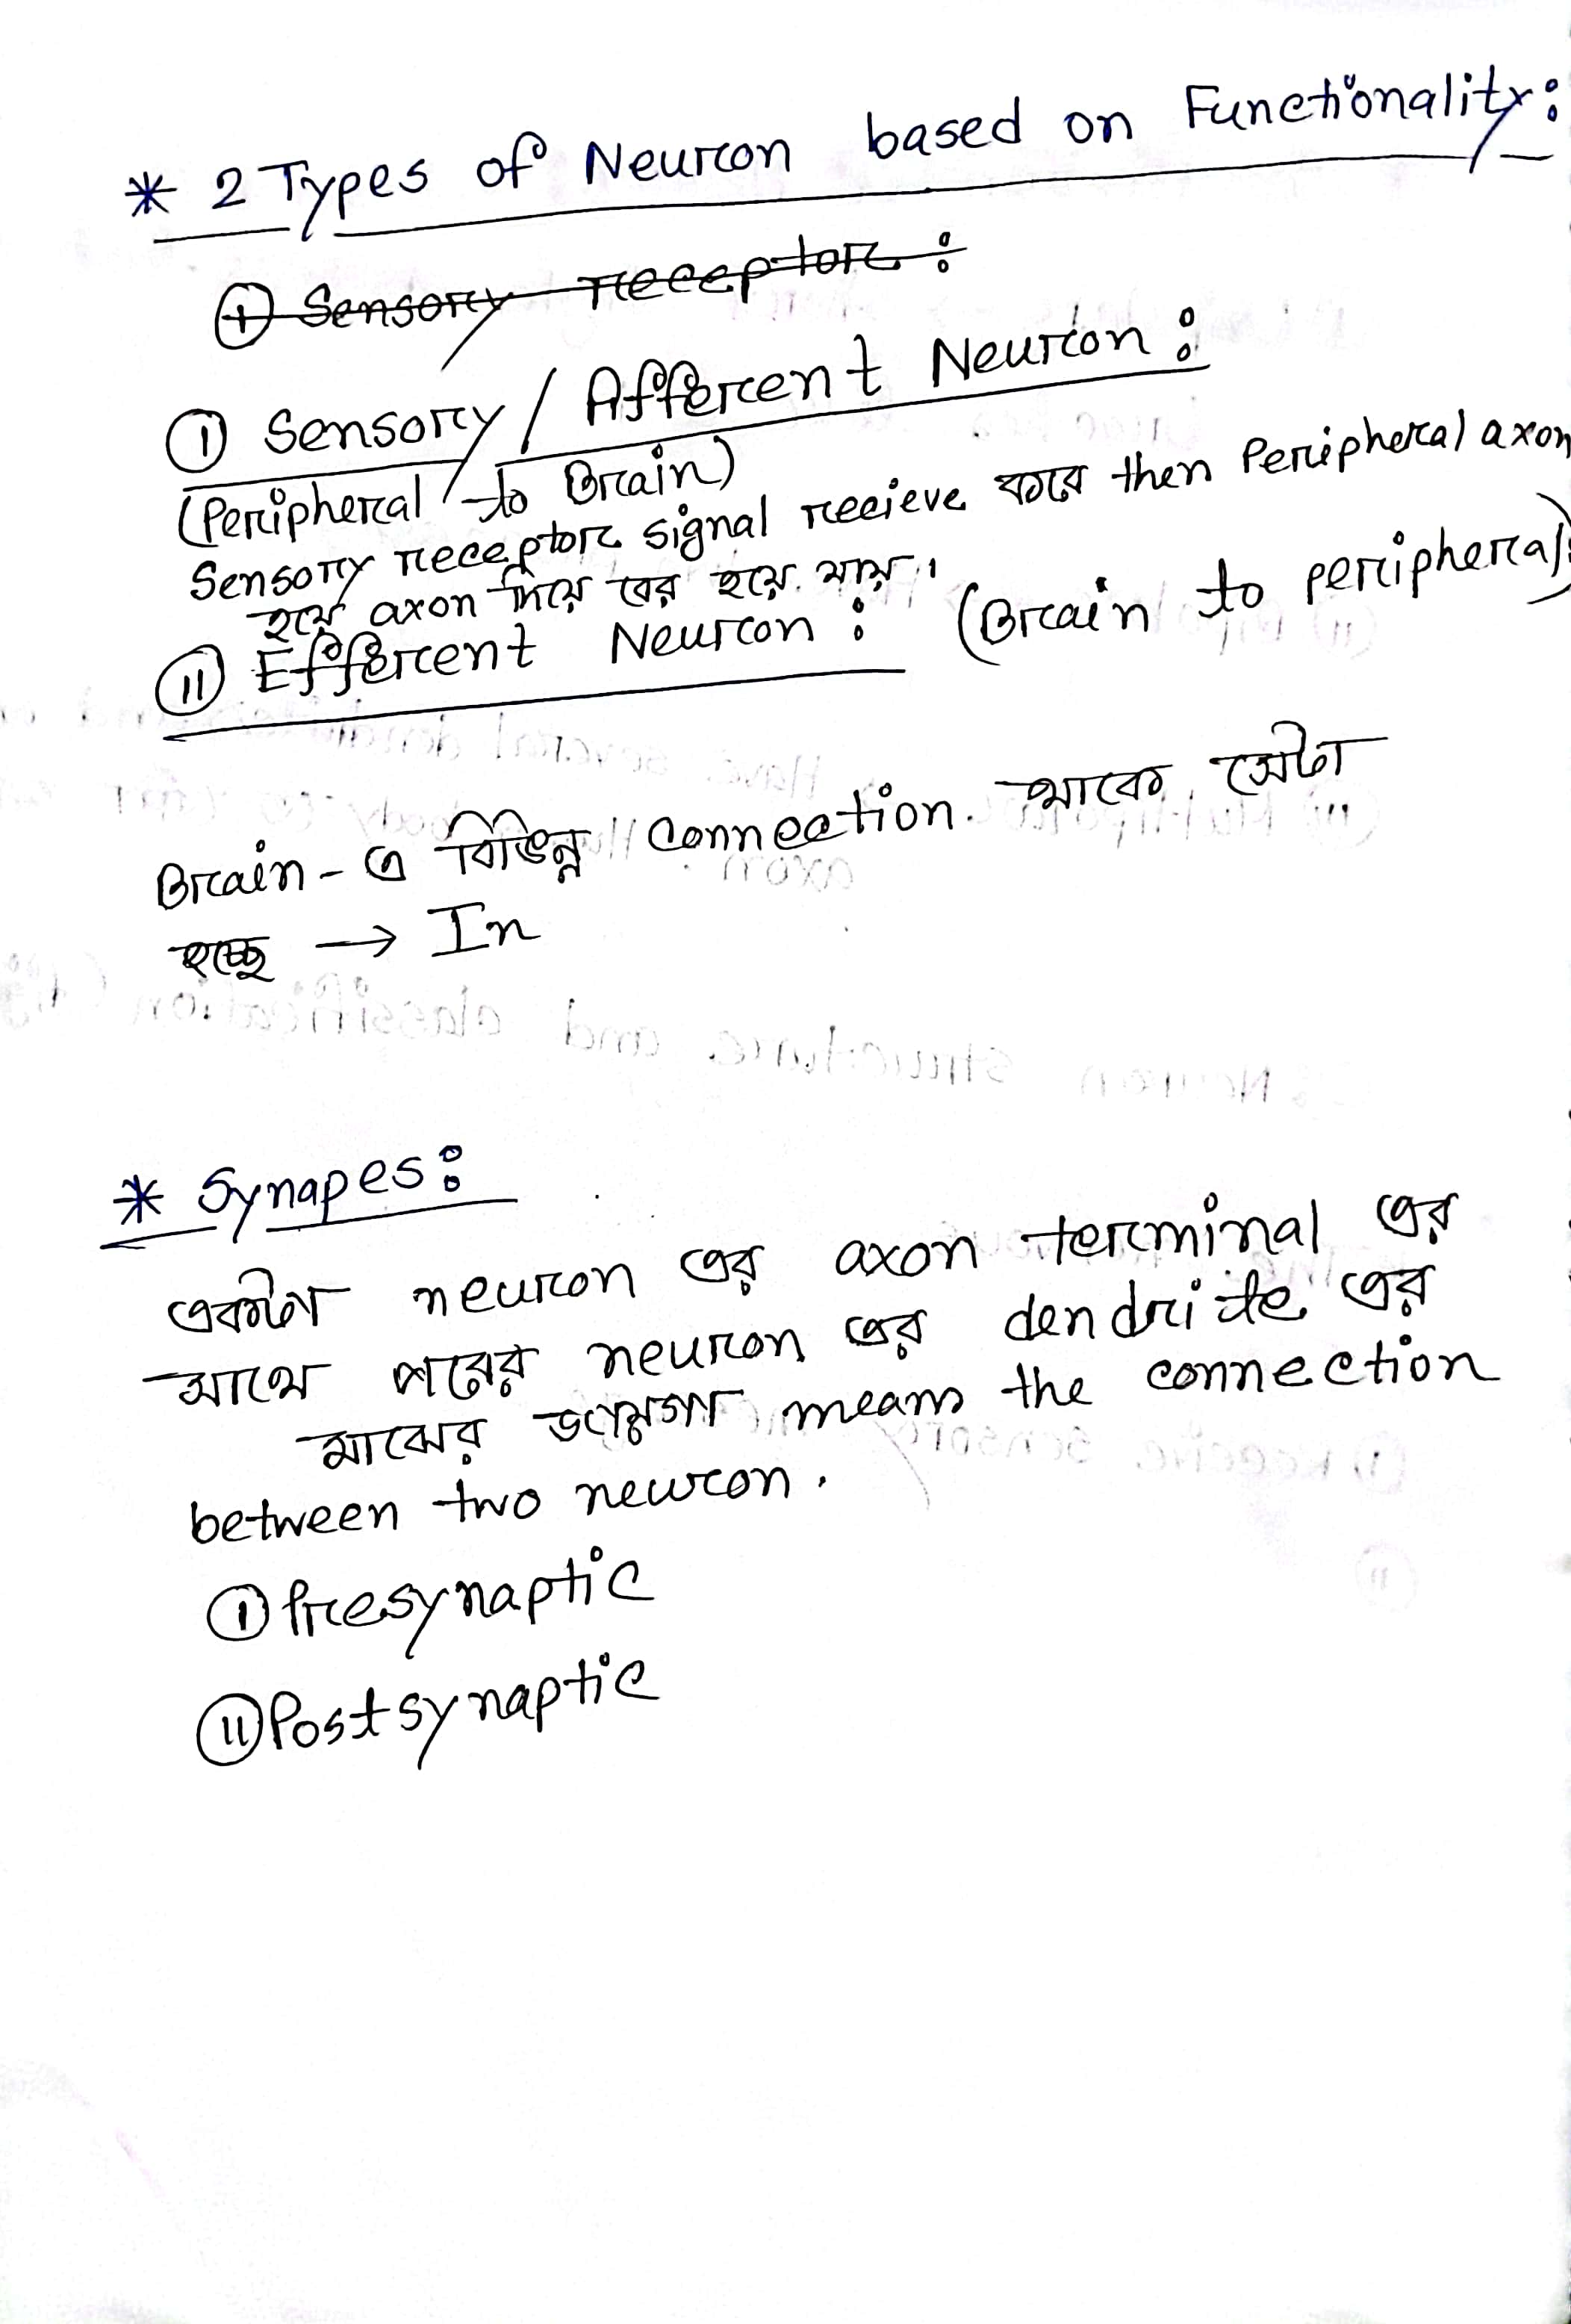 * 2 Types of Neuron based on Functionality:
① Sensory receptor:
① Sensory / Afferent Neuron:
(Peripheral to Brain)
Sensory receptor signal recieve করে then Peripheral axon
হয়ে axon দিয়ে বের হয়ে যায়।
② Efferent Neuron: (Brain to peripheral)
Brain-এ বিভিন্ন Connection থাকে সেটা
হচ্ছে → In
* Synapes:
একটা neuron এর axon terminal এর
সাথে পরের neuron এর dendrite এর
মাঝের জায়গা means the connection
between two neuron.
① Presynaptic
② Postsynaptic